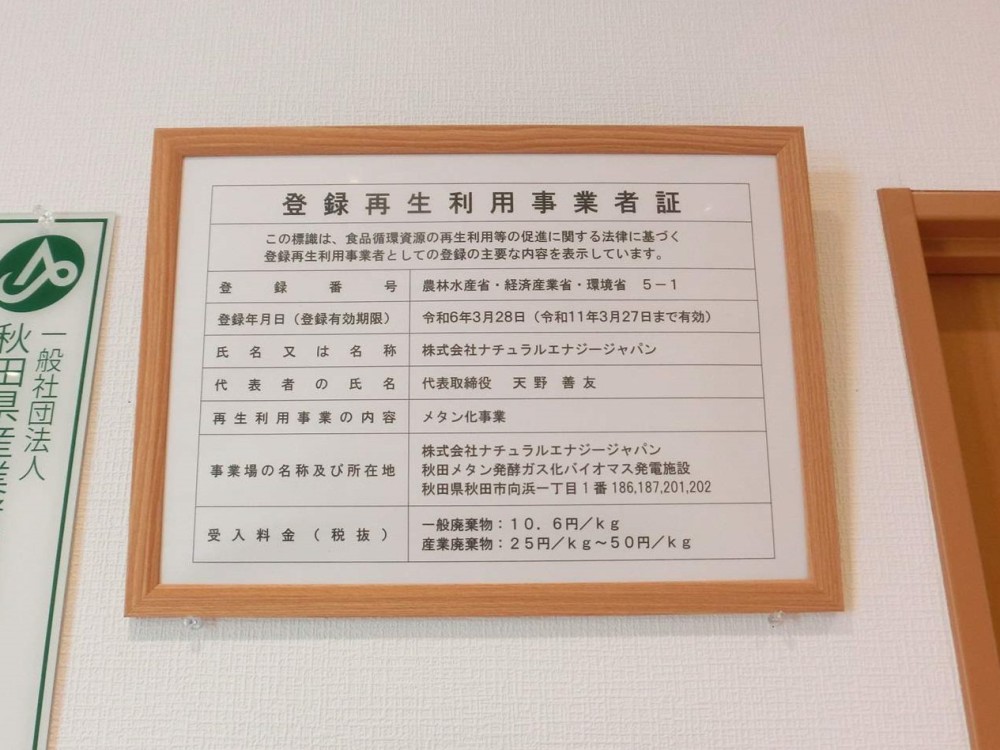 登録再生利用事業者証
この標識は、食品循環資源の再生利用等の促進に関する法律に基づく
登録再生利用事業者としての登録の主要な内容を表示しています。
登録番号 農林水産省・経済産業省・環境省 5-1
登録年月日（登録有効期限） 令和6年3月28日（令和11年3月27日まで有効）
氏名又は名称 株式会社ナチュラルエナジージャパン
代表者の氏名 代表取締役 天野善友
再生利用事業の内容 メタン化事業
事業場の名称及び所在地
株式会社ナチュラルエナジージャパン
秋田メタン発酵ガス化バイオマス発電施設
秋田県秋田市向浜一丁目1番186,187,201,202
受入料金（税抜）
一般廃棄物：10．6円／kg
産業廃棄物：25円／kg～50円／kg
一般社団法人
秋田県産業